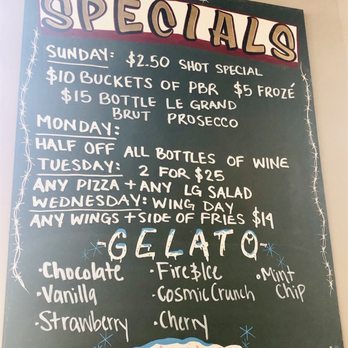 SPECIALS
SUNDAY: $2.50 SHOT SPECIAL
$10 BUCKETS OF PBR $5 FROZÉ
$15 BOTTLE LE GRAND
BRUT PROSECCO
MONDAY:
HALF OFF ALL BOTTLES OF WINE
TUESDAY: 2 FOR $25
ANY PIZZA + ANY LG SALAD
WEDNESDAY: WING DAY
ANY WINGS + SIDE OF FRIES $14
-GELATO-
·Chocolate ·Fire$Ice ·Mint
Chip
·Vanilla ·Cosmic Crunch
·Strawberry ·Cherry